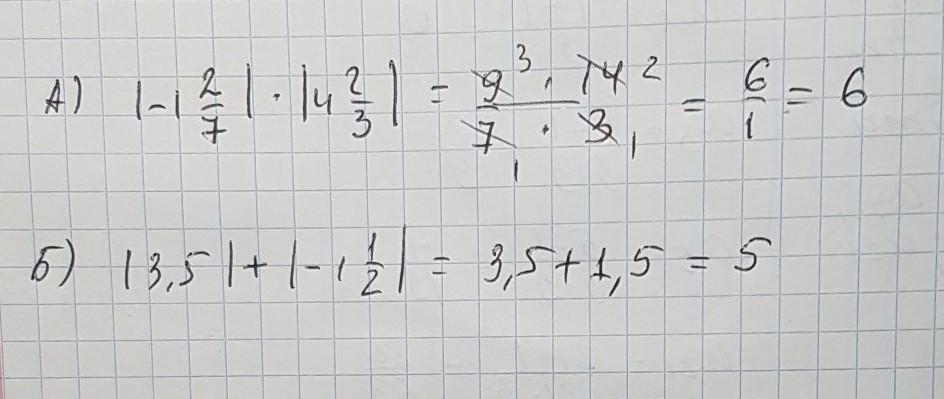 А) |-1 2/7| · |4 2/3| = 9³ · 14² / 7₁ · 3₁ = 6/1 = 6
Б) |3,5| + |-1 1/2| = 3,5 + 1,5 = 5